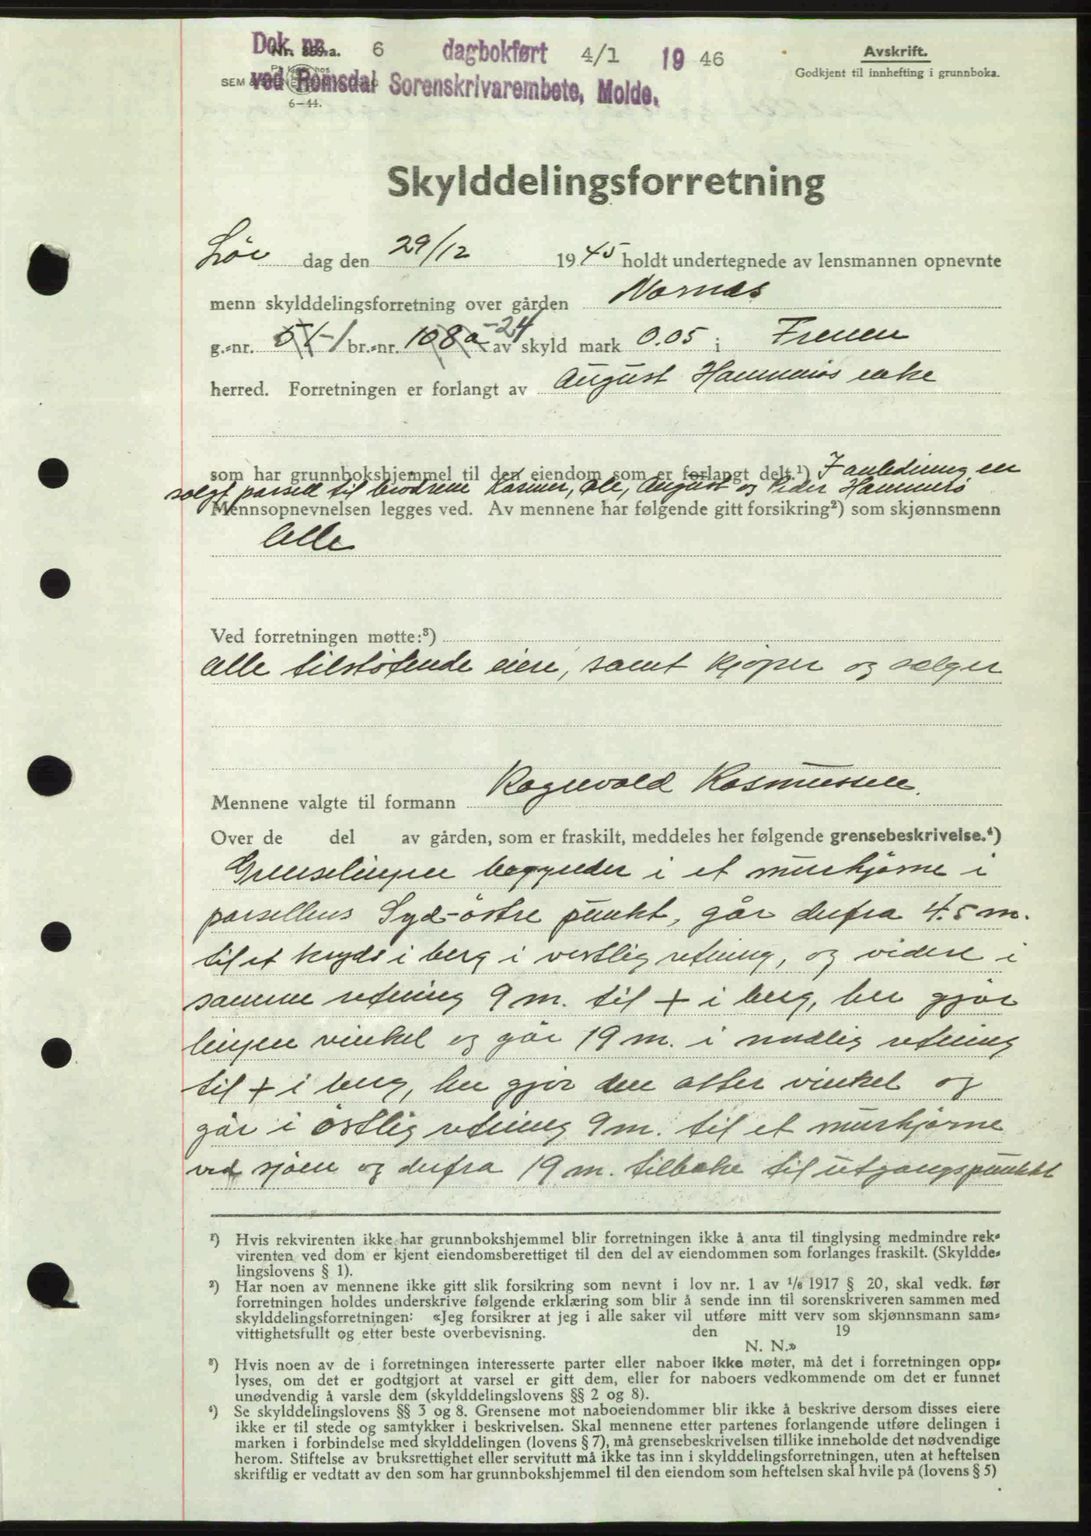 Dok nr. 6 dagbokført 4/1 1946
ved Romsdal Sorenskrivarembete, Molde.
6—44.
Avskrift.
Godkjent til innhefting i grunnboka.
Skylddelingsforretning
Lör dag den 29/12 1945 holdt undertegnede av lensmannen opnevnte
menn skylddelingsforretning over gården Nornes
g.-nr. 51-1 br.-nr. 108a -24 av skyld mark 0.05 i Frenen
herred. Forretningen er forlangt av August Hammerös enke
som har grunnbokshjemmel til den eiendom som er forlangt delt.¹) I anledning en
solgt parsell til brödrene Rasmus, Ole, August og Peder Hammerö
Mennsopnevnelsen legges ved. Av mennene har følgende gitt forsikring²) som skjønnsmenn
Alle
Ved forretningen møtte:³)
Alle tilstötende eiere, samt kjöper og selger
Mennene valgte til formann Ragnvald Rasmussen.
Over de del av gården, som er fraskilt, meddeles her følgende grensebeskrivelse.⁴)
Grenselinjen begynder i et murhjörne i
parsellens Syd-östre punkt, går derfra 4.5 m.
til et kryds i berg i vestlig retning, og videre i
samme retning 9 m. til + i berg, her gjör
linjen vinkel og går 19 m. i nordlig retning
til + i berg, her gjör den atter vinkel og
går i östlig retning 9 m. til et murhjörne
ved sjöen og derfra 19 m. tilbake til utgangspunktet
¹) Hvis rekvirenten ikke har grunnbokshjemmel blir forretningen ikke å anta til tinglysing medmindre rek-
virenten ved dom er kjent eiendomsberettiget til den del av eiendommen som forlanges fraskilt. (Skyldde-
lingslovens § 1).
²) Har noen av mennene ikke gitt slik forsikring som nevnt i lov nr. 1 av 1/6 1917 § 20, skal vedk. før
forretningen holdes underskrive følgende erklæring som blir å sende inn til sorenskriveren sammen med
skylddelingsforretningen: «Jeg forsikrer at jeg i alle saker vil utføre mitt verv som skjønnsmann sam-
vittighetsfullt og etter beste overbevisning. den 19
N. N.»
³) Hvis noen av de i forretningen interesserte parter eller naboer ikke møter, må det i forretningen opp-
lyses, om det er godtgjort at varsel er gitt dem, eller for naboers vedkommende om det er funnet
unødvendig å varsle dem (skylddelingslovens §§ 2 og 8).
⁴) Se skylddelingslovens §§ 3 og 8. Grensene mot naboeiendommer blir ikke å beskrive dersom disses eiere
ikke er til stede og samtykker i beskrivelsen. Skal mennene etter partenes forlangende utføre delingen i
marken i forbindelse med skylddelingen (lovens § 7), må grensebeskrivelsen tillike inneholde det nødvendige
herom. Stiftelse av bruksrettighet eller servitutt må ikke tas inn i skylddelingsforretningen, uten at heftelsen
skriftlig er vedtatt av den som har grunnbokshjemmel til den eiendom som heftelsen skal hvile på (lovens § 5)